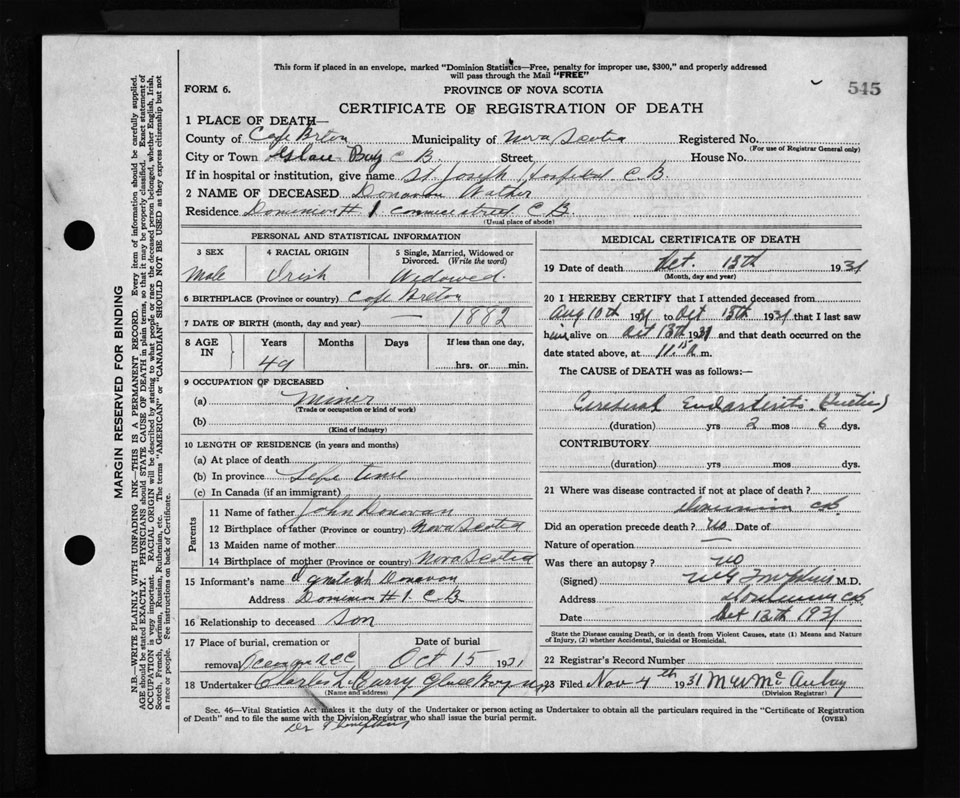 This form if placed in an envelope, marked "Dominion Statistics—Free, penalty for improper use, $300," and properly addressed
will pass through the Mail "FREE"
FORM 6.
PROVINCE OF NOVA SCOTIA
545
CERTIFICATE OF REGISTRATION OF DEATH
1 PLACE OF DEATH—
County of Cape Breton Municipality of Nova Scotia Registered No.
(For use of Registrar General only)
City or Town Glace Bay C B. Street House No.
If in hospital or institution, give name St. Joseph Hospital C.B.
2 NAME OF DECEASED Donovan
Residence Dominion # 1. street C B.
(Usual place of abode)
PERSONAL AND STATISTICAL INFORMATION
3 SEX 4 RACIAL ORIGIN 5 Single, Married, Widowed or
Divorced. (Write the word)
Male Irish Widowed.
6 BIRTHPLACE (Province or country) Cape Breton
7 DATE OF BIRTH (month, day and year) — 1882
8 AGE IN Years Months Days If less than one day,
49 hrs. or min.
9 OCCUPATION OF DECEASED
(a) Miner
(Trade or occupation or kind of work)
(b)
(Kind of industry)
10 LENGTH OF RESIDENCE (in years and months)
(a) At place of death
(b) In province Life time
(c) In Canada (if an immigrant)
Parents
11 Name of father John Donovan
12 Birthplace of father (Province or country) Nova Scotia
13 Maiden name of mother
14 Birthplace of mother (Province or country) Nova Scotia
15 Informant's name Donavon
Address Dominion # 1. C B
16 Relationship to deceased son
17 Place of burial, cremation or Date of burial
removal Oct 15 1931
18 Undertaker Charles L. Curry Glace Bay NS
(Name and address)
MEDICAL CERTIFICATE OF DEATH
19 Date of death Oct. 13th 1931
(Month, day and year)
20 I HEREBY CERTIFY that I attended deceased from
Aug 10th 1931 to Oct 13th 1931 that I last saw
him alive on Oct 13th 1931 and that death occurred on the
date stated above, at 11.15 m.
The CAUSE of DEATH was as follows:—
Cerebral Endarteritis
(duration) yrs 2 mos 6 dys.
CONTRIBUTORY
(duration) yrs mos dys.
21 Where was disease contracted if not at place of death?
Dominion CB.
Did an operation precede death? no Date of
Nature of operation —
Was there an autopsy? no
(Signed) Tompkins M.D.
Address Dominion CB
Date Oct 13th 1931
State the Disease causing Death, or in death from Violent Causes, state (1) Means and Nature
of Injury, (2) whether Accidental, Suicidal or Homicidal.
22 Registrar's Record Number
23 Filed Nov 4th 1931
(Division Registrar)
Sec. 46—Vital Statistics Act makes it the duty of the Undertaker or person acting as Undertaker to obtain all the particulars required in the "Certificate of Registration
of Death" and to file the same with the Division Registrar who shall issue the burial permit.
(OVER)
Dr Thompkins
MARGIN RESERVED FOR BINDING
N.B.—WRITE PLAINLY WITH UNFADING INK—THIS IS A PERMANENT RECORD. Every item of information should be carefully supplied.
AGE should be stated EXACTLY. PHYSICIANS should STATE CAUSE OF DEATH in plain terms, so that it may be properly classified. Exact statement of
OCCUPATION is very important. RACIAL ORIGIN will be described by stating to what people or race the deceased person belonged, whether English, Irish,
Scotch, French, German, Russian, Ruthenian, etc. The terms "AMERICAN" or "CANADIAN" SHOULD NOT BE USED as they express citizenship but not
a race or people. See instructions on back of Certificate.